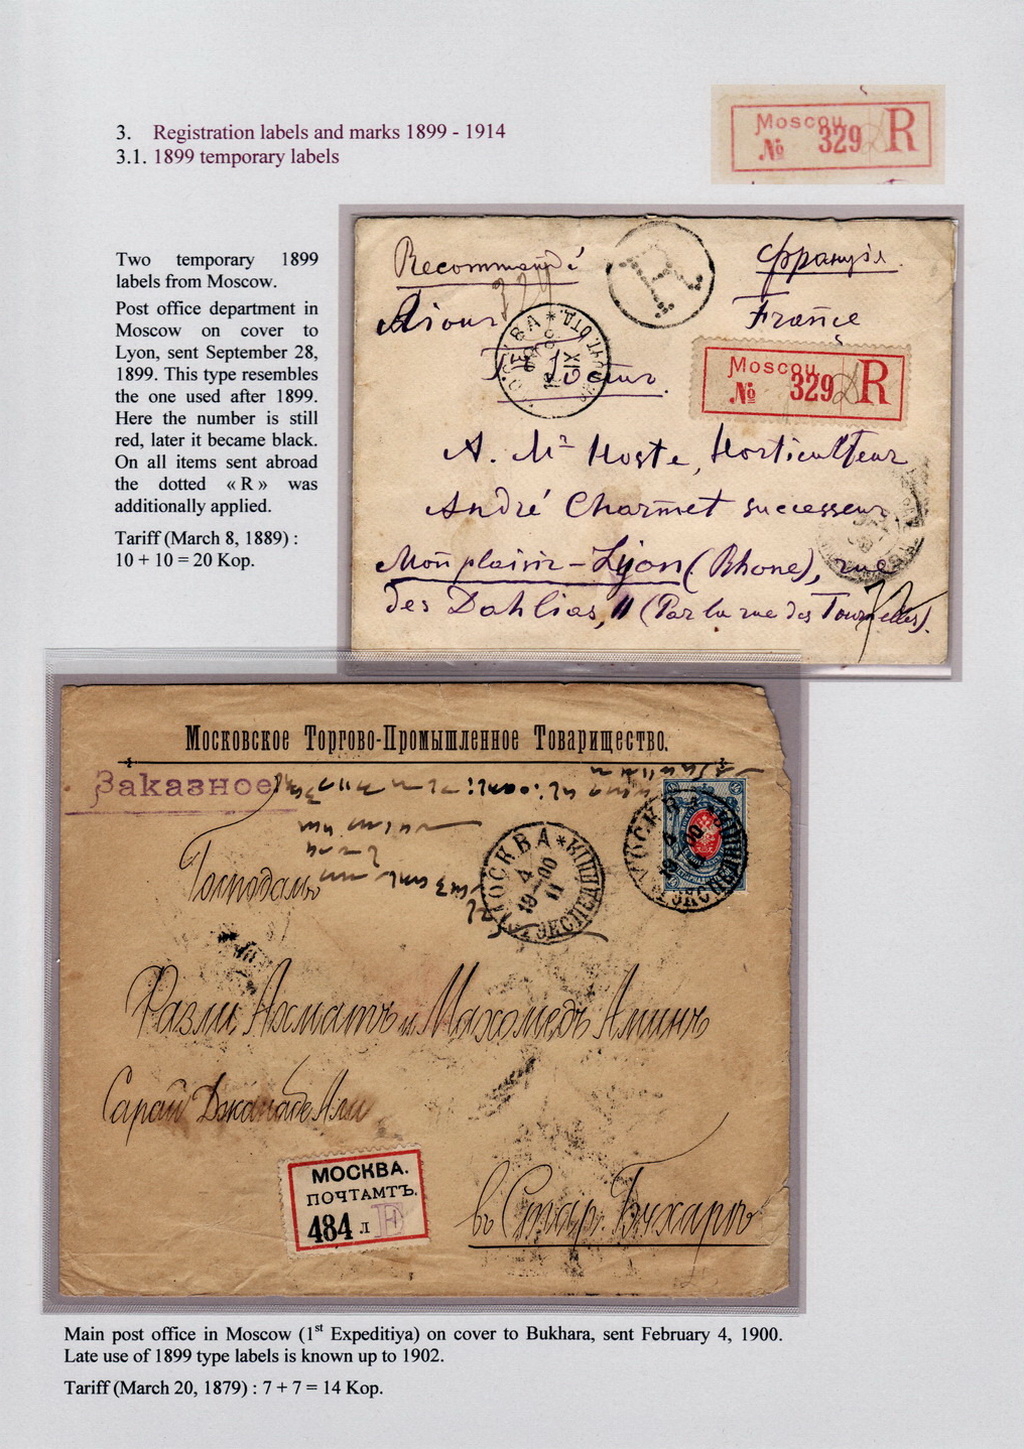 3. Registration labels and marks 1899 - 1914
3.1. 1899 temporary labels
Moscou
№ 329 R
Two temporary 1899
labels from Moscow.
Post office department in
Moscow on cover to
Lyon, sent September 28,
1899. This type resembles
the one used after 1899.
Here the number is still
red, later it became black.
On all items sent abroad
the dotted «R» was
additionally applied.
Tariff (March 8, 1889) :
10 + 10 = 20 Kop.
Recommandé
R
Франція.
329
France
Moscou
№ 329 R
A. Mr Hoste, Horticulteur
André Charmet successeur
Monplaisir - Lyon (Rhone), rue
des Dahlias, 11 (Par la rue des Tournelles).
Московское Торгово-Промышленное Товарищество.
Заказное
МОСКВА
4
19-00
II
ЭКСПЕДИЦІЯ
МОСКВА
4
19-00
ЭКСПЕДИЦІЯ
Господамъ
Фазли Ахматъ и Махомедъ Аминъ
Сарай
МОСКВА.
ПОЧТАМТЪ.
484 л
въ Стар. Бухаръ
Main post office in Moscow (1st Expeditiya) on cover to Bukhara, sent February 4, 1900.
Late use of 1899 type labels is known up to 1902.
Tariff (March 20, 1879) : 7 + 7 = 14 Kop.